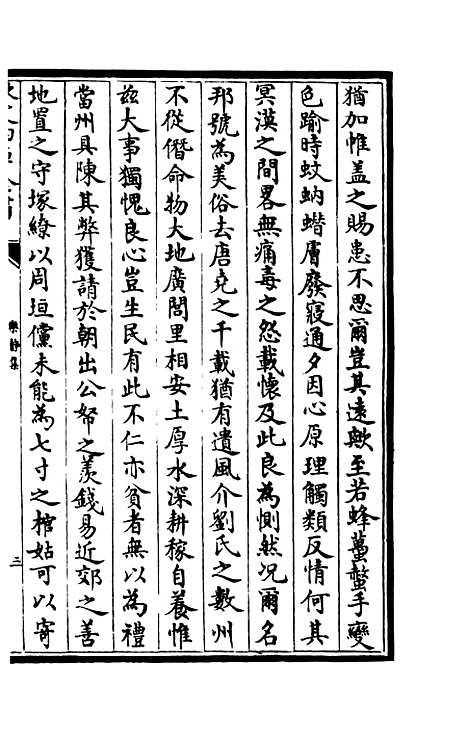 猶加惟盖之賜患不思爾豈其遠歟至若蜂蠆螫手變
色踰時蚊蚋䜛膚廢寢通夕因心原理觸類反情何其
冥漠之間畧無痛毒之怨載懷及此良為惻然况爾名
邦號為美俗去唐尭之千載猶有遺風介劉氏之數州
不從僭命物大地廣閭里相安土厚水深耕稼自養惟
兹大事獨愧良心豈生民有此不仁亦貧者無以為禮
當州具陳其弊獲請於朝出公帑之羨錢易近郊之善
地置之守塚繚以周垣儻未能為七寸之棺姑可以寄
樂静集
三